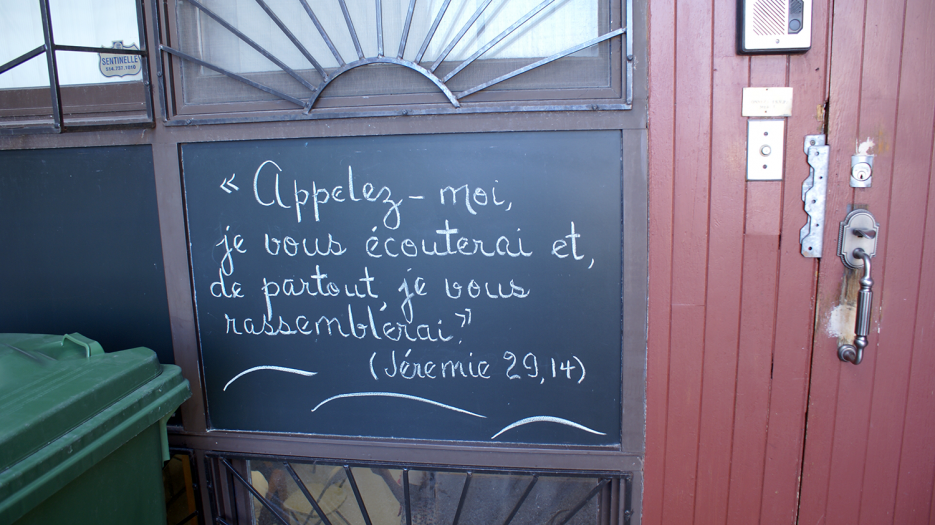 SENTINELLE
« Appelez-moi,
je vous écouterai et,
de partout, je vous
rassemblerai. »
(Jéremie 29, 14)